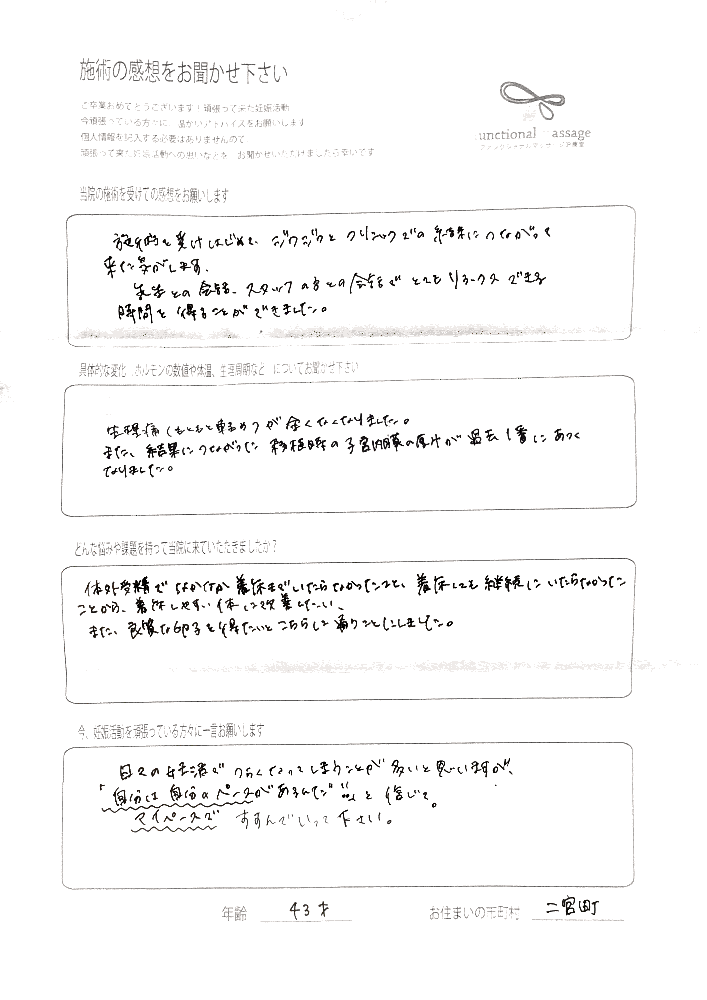 施術の感想をお聞かせ下さい
ご卒業おめでとうございます！頑張って来た妊娠活動
今頑張っている方々に　温かいアドバイスをお願いします
個人情報を記入する必要はありませんので
頑張って来た妊娠活動への思いなどを　お聞かせいただけましたら幸いです
unctional assage
当院の施術を受けての感想をお願いします
施術を受けはじめて、ジワジワとクリニックでの結果につながって
来た気がします。
先生との会話、スタッフの方との会話でとてもリラックスできる
時間を得ることができました。
具体的な変化　ホルモンの数値や体温、生理周期など　についてお聞かせ下さい
生理痛（もともと軽めでも）が全くなくなりました。
また、結果につながった移植時の子宮内膜の厚さが過去1番にあつく
なりました。
どんな悩みや課題を持って当院に来ていただきましたか？
体外受精でなかなか着床までいたらなかったこと、着床しても継続にいたらなかった
ことから、着床しやすい体に改善したい、
また、良質な卵子を得たいとこちらに通うことにしました。
今、妊娠活動を頑張っている方々に一言お願いします
日々の妊活でつらくなってしまうことが多いと思いますが、
「自分は自分のペースがあるんだ」と信じて。
マイペースで すすんでいって下さい。
年齢 43才 お住まいの市町村 二宮町